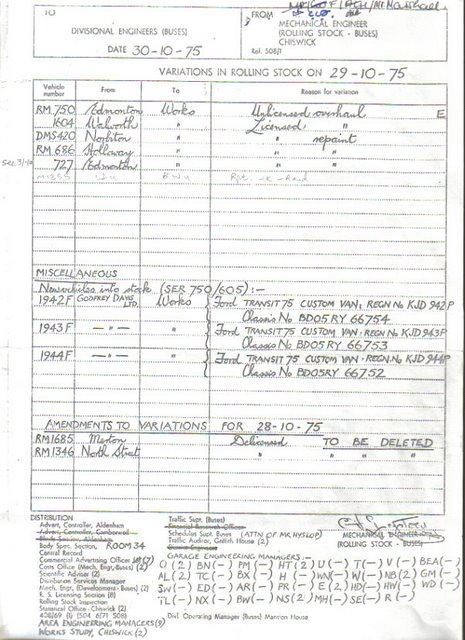 TO
DIVISIONAL ENGINEERS (BUSES)
DATE 30-10-75
FROM
MECHANICAL ENGINEER
(ROLLING STOCK - BUSES)
CHISWICK
Ref. 508/1
VARIATIONS IN ROLLING STOCK ON 29-10-75
Vehicle number From To Reason for variation
RM 750 Edmonton Works Unlicensed overhaul E
1604 Walworth " Licensed "
DMS 420 Norbiton " " repaint
RM 686 Holloway " " "
727 Edmonton " " "
MISCELLANEOUS
New vehicles into stock (SER 750/605) :-
1942F GODFREY DAVIS LTD. Works Ford TRANSIT 75 CUSTOM VAN: REGN No KJD 942P
Chassis No BD05RY 66754
1943F —„— " Ford TRANSIT 75 CUSTOM VAN: REGN No KJD 943P
Chassis No BD05RY 66753
1944F —„— " Ford TRANSIT 75 CUSTOM VAN - REGN No KJD 944P
Chassis No BD05RY 66752
AMENDMENTS TO VARIATIONS FOR 28-10-75
RM1685 Merton Delicensed TO BE DELETED
RM1346 North Street " " " "
DISTRIBUTION
Advert. Controller, Aldenham
Advert. Controller, Camberwell
Body Spec. Section, ROOM 34
Central Record
Commercial Advertising Officer
Costs Office (Mech. Engr., Buses)
Scientific Adviser (2)
Distribution Services Manager
Mech. Engr. (Development - Buses) (2)
R. S. Licensing Section (8)
Rolling Stock Inspection
Statistical Office - Chiswick (2)
AREA ENGINEERING MANAGERS (9)
WORKS STUDY, CHISWICK (2)
Traffic Supt. (Buses)
Financial Research Officer
Schedules Supt. Buses (ATTN OF MR HYSLOP)
Traffic Auditor, Griffith House (2)
MECHANICAL ENGINEER
(ROLLING STOCK - BUSES)
GARAGE ENGINEERING MANAGERS:-
Q (2) BN(-) PM(-) HT(2) U(-) T(-) V(-) BEA(-)
AL(2) TC(-) BX(-) H(-) WN(-) W(-) NB(2) GM(-)
SW(-) ED(-) AR(-) PR(-) E(2) HD(-) HW(-) WD(-)
TL(-) NX(-) BW(-) NS(2) MH(-) SE(-) R(-)
Divl. Operating Manager (Buses) Manston House